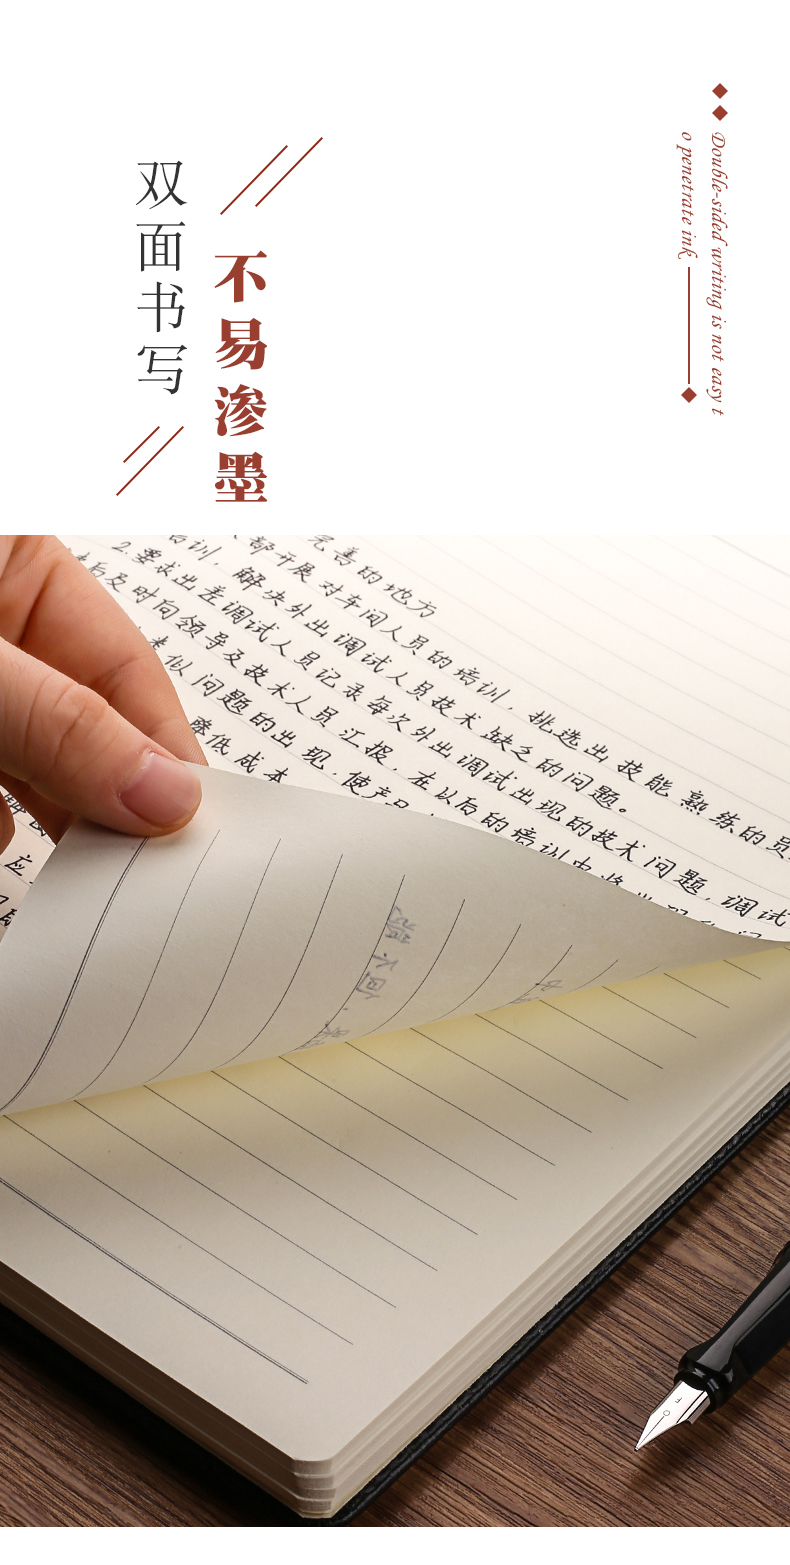 双面书写
不易渗墨
Double-sided writing is not easy t
o penetrate ink
完善的地方
部开展对车间人员的培训，挑选出技能熟练的员
培训，解决外出调试人员技术缺乏的问题。
2.要求出差调试人员记录每次外出调试出现的技术问题，调试
后及时向领导及技术人员汇报，在以后的培训中将出现
类似问题的出现，使产品
降低成本